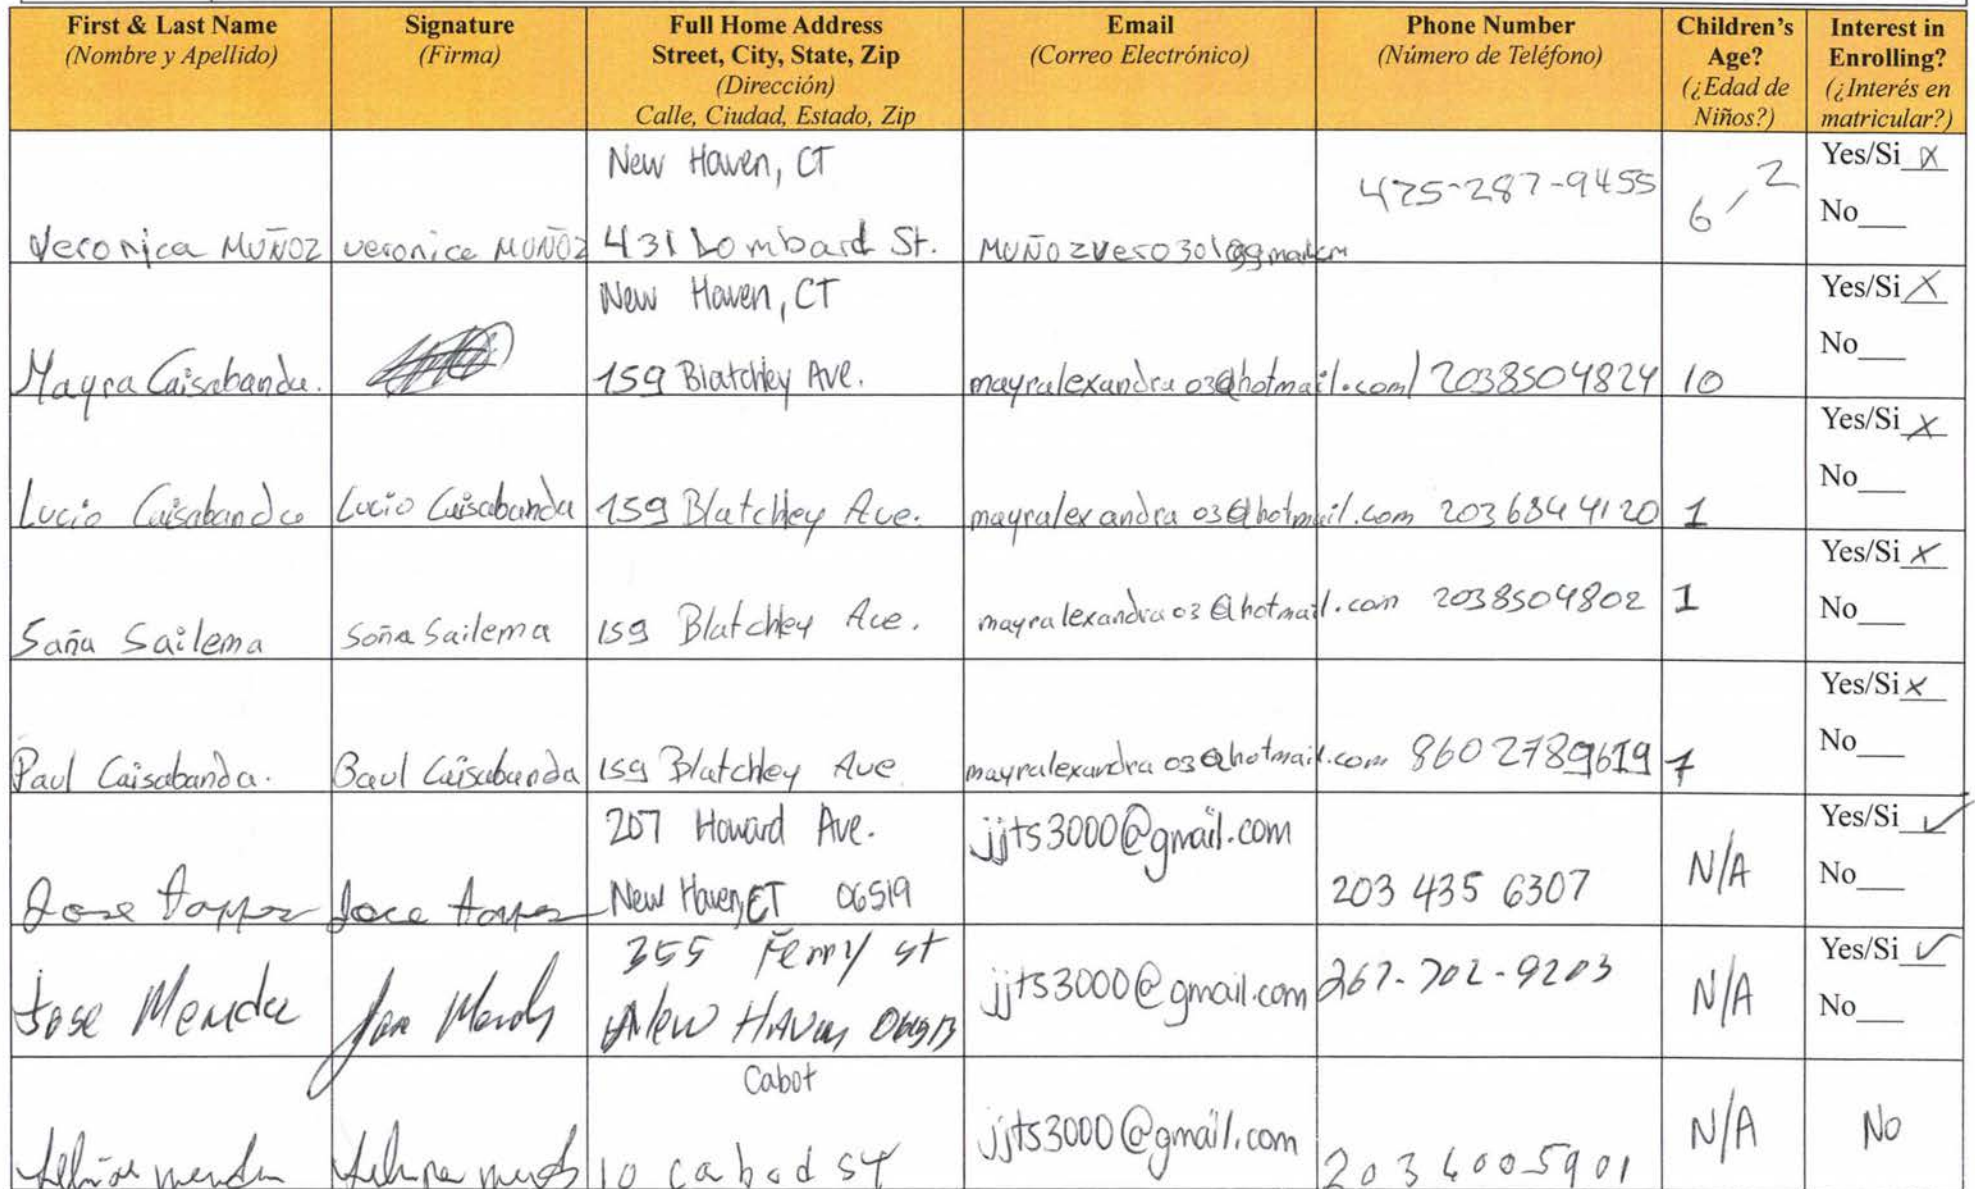 First & Last Name
(Nombre y Apellido)
Signature
(Firma)
Full Home Address
Street, City, State, Zip
(Dirección)
Calle, Ciudad, Estado, Zip
Email
(Correo Electrónico)
Phone Number
(Número de Teléfono)
Children's
Age?
(¿Edad de
Niños?)
Interest in
Enrolling?
(¿Interés en
matricular?)
Veronica MUÑOZ
veronica MUÑOZ
New Haven, CT
431 Lombard St.
MUÑOZvero301@gmail.com
475-287-9455
6, 2
Yes/Si X
No
Mayra Caisabanda.
New Haven, CT
159 Blatchley Ave.
mayralexandra03@hotmail.com/
2038504824
10
Yes/Si X
No
Lucio Caisabanda
Lucio Caisabanda
159 Blatchley Ave.
mayralexandra03@hotmail.com
2036844120
1
Yes/Si X
No
Saña Sailema
Soña Sailema
159 Blatchley Ave.
mayralexandra03@hotmail.com
2038504802
1
Yes/Si X
No
Paul Caisabanda.
Baul Caisabanda
159 Blatchley Ave
mayralexandra03@hotmail.com
8602789619
7
Yes/Si X
No
Jose
Jose
207 Howard Ave.
New Haven, CT 06519
jjts3000@gmail.com
203 435 6307
N/A
Yes/Si ✓
No
Jose Mendez
355 Ferry st
New Haven 06513
jjts3000@gmail.com
267-702-9203
N/A
Yes/Si ✓
No
Cabot
10 cabod st
jjts3000@gmail.com
2036005901
N/A
No